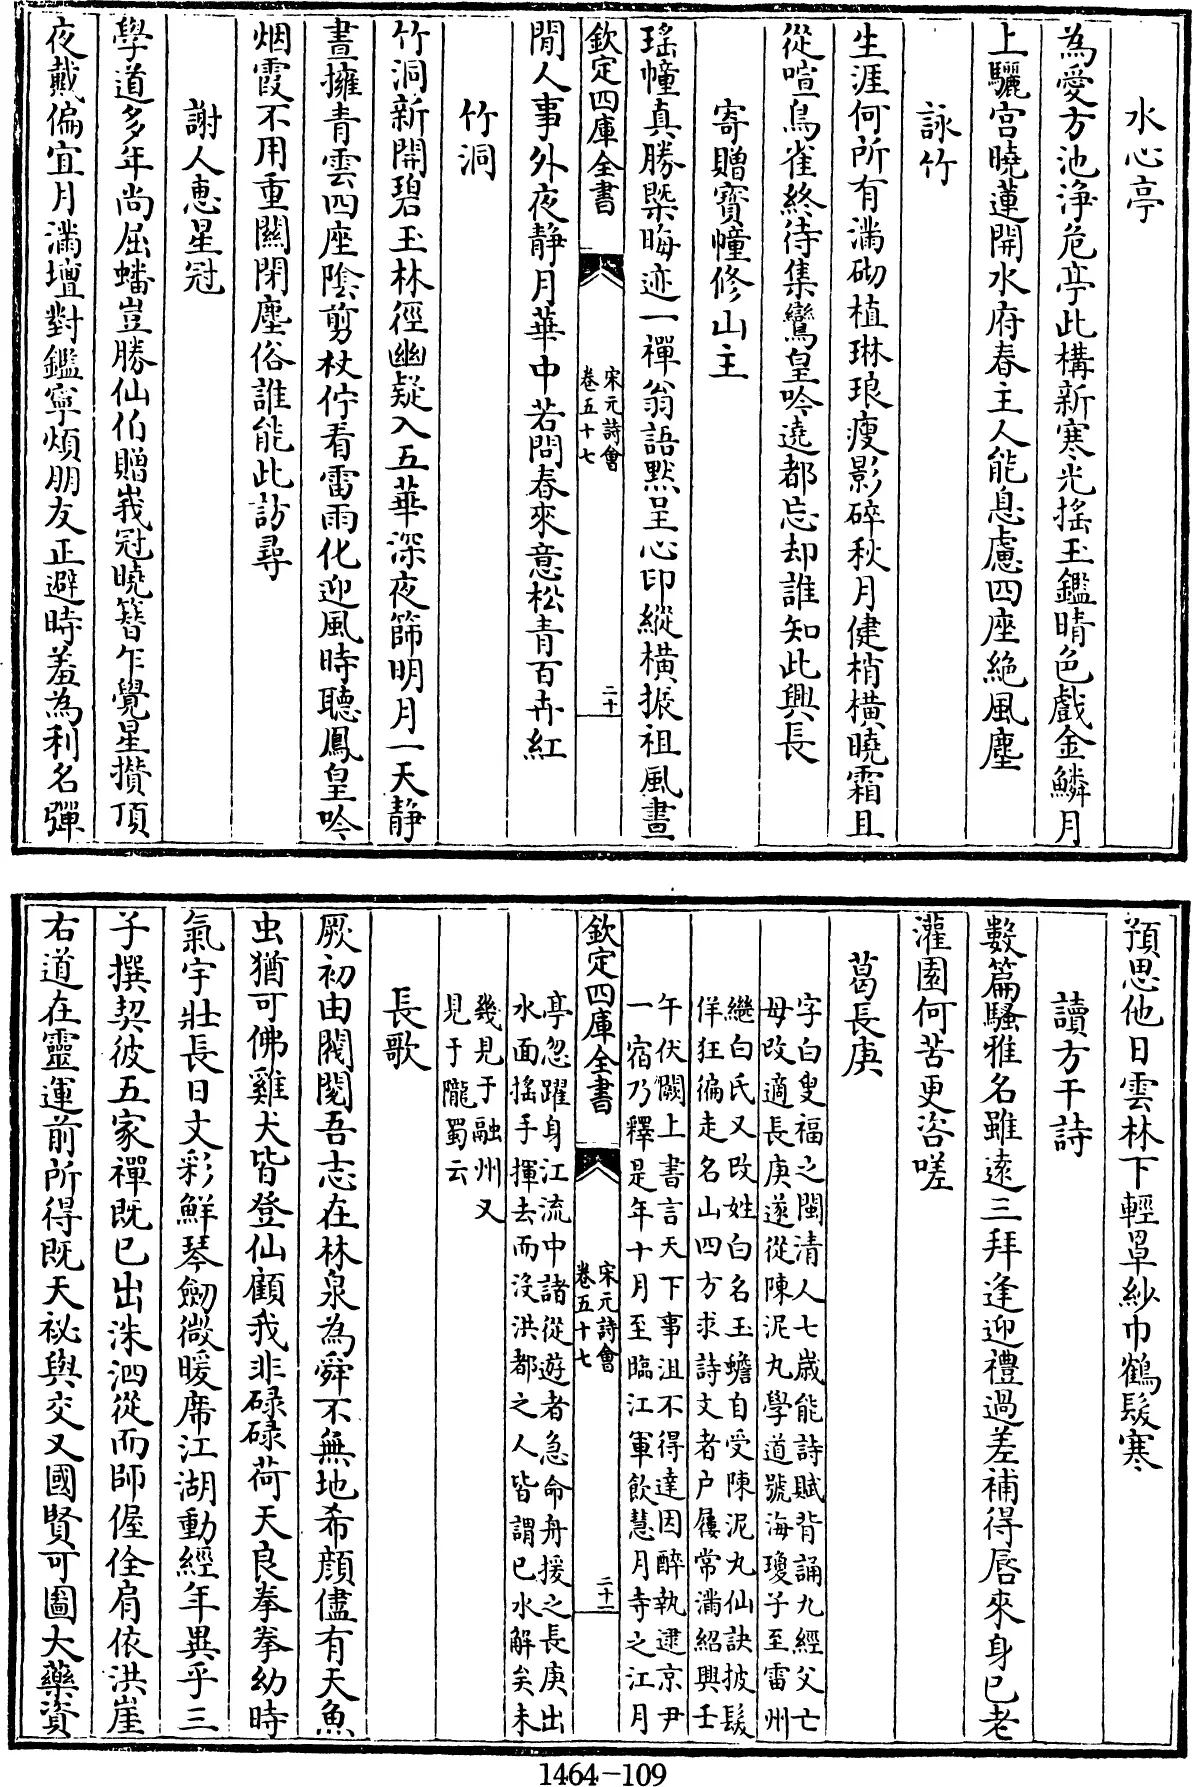 水心亭
為愛方池浄危亭此構新寒光搖玉鑑晴色戲金鱗月
上驪宫曉蓮開水府春主人能息慮四座絶風塵
詠竹
生涯何所有滿砌植琳琅瘦影碎秋月健梢橫曉霜且
從喧鳥雀終待集鸞皇吟遶都忘却誰知此興長
寄贈寳幢修山主
瑤幢真勝槩晦迹一禪翁語黙呈心印縱橫振祖風晝
欽定四庫全書
宋元詩會
卷五十七
二十
閒人事外夜静月華中若問春來意松青百卉紅
竹洞
竹洞新開碧玉林徑幽疑入五華深夜篩明月一天静
晝擁青雲四座隂剪杖佇看雷雨化迎風時聽鳳皇吟
烟霞不用重闗閉塵俗誰能此訪尋
謝人惠星冠
學道多年尚屈蟠豈勝仙伯贈峩冠曉簮乍覺星攢頂
夜戴偏宜月滿壇對鑑寧煩朋友正避時羞為利名彈
預思他日雲林下輕罩紗巾鶴髮寒
讀方干詩
數篇騷雅名雖逺三拜逢迎禮過差補得唇來身已老
灌園何苦更咨嗟
葛長庚
字白叟福之閩清人七歲能詩賦背誦九經父亡
母改適長庚遂從陳泥丸學道號海瓊子至雷州
繼白氏又改姓白名玉蟾自受陳泥丸仙訣披髮
佯狂徧走名山四方求詩文者户屨常滿紹興壬
午伏闕上書言天下事沮不得達因醉執逮京尹
一宿乃釋是年十月至臨江軍飲慧月寺之江月
欽定四庫全書
宋元詩會
卷五十七
二十一
亭忽躍身江流中諸從遊者急命舟援之長庚出
水面搖手揮去而没洪都之人皆謂已水解矣未
幾見于融州又
見于隴蜀云
長歌
厥初由閥閲吾志在林泉為舜不無地希顔儘有天魚
虫猶可佛雞犬皆登仙顧我非碌碌荷天良拳拳幼時
氣宇壯長日文彩鮮琴劒微暖席江湖動經年異乎三
子撰契彼五家禪既已出洙泗從而師偓佺肩依洪崖
右道在靈運前所得既天祕與交又國賢可圖大藥資
1464-109